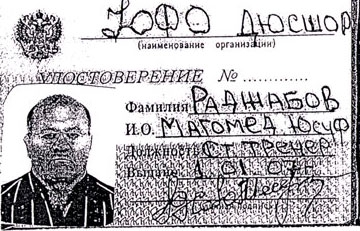 ЮФО ДЮСШОР
(наименование организации)
УДОСТОВЕРЕНИЕ №
Фамилия РАДЖАБОВ
И.О. МАГОМЕД Юсуф
Должность Ст тренер
Выдано 1.01 07г